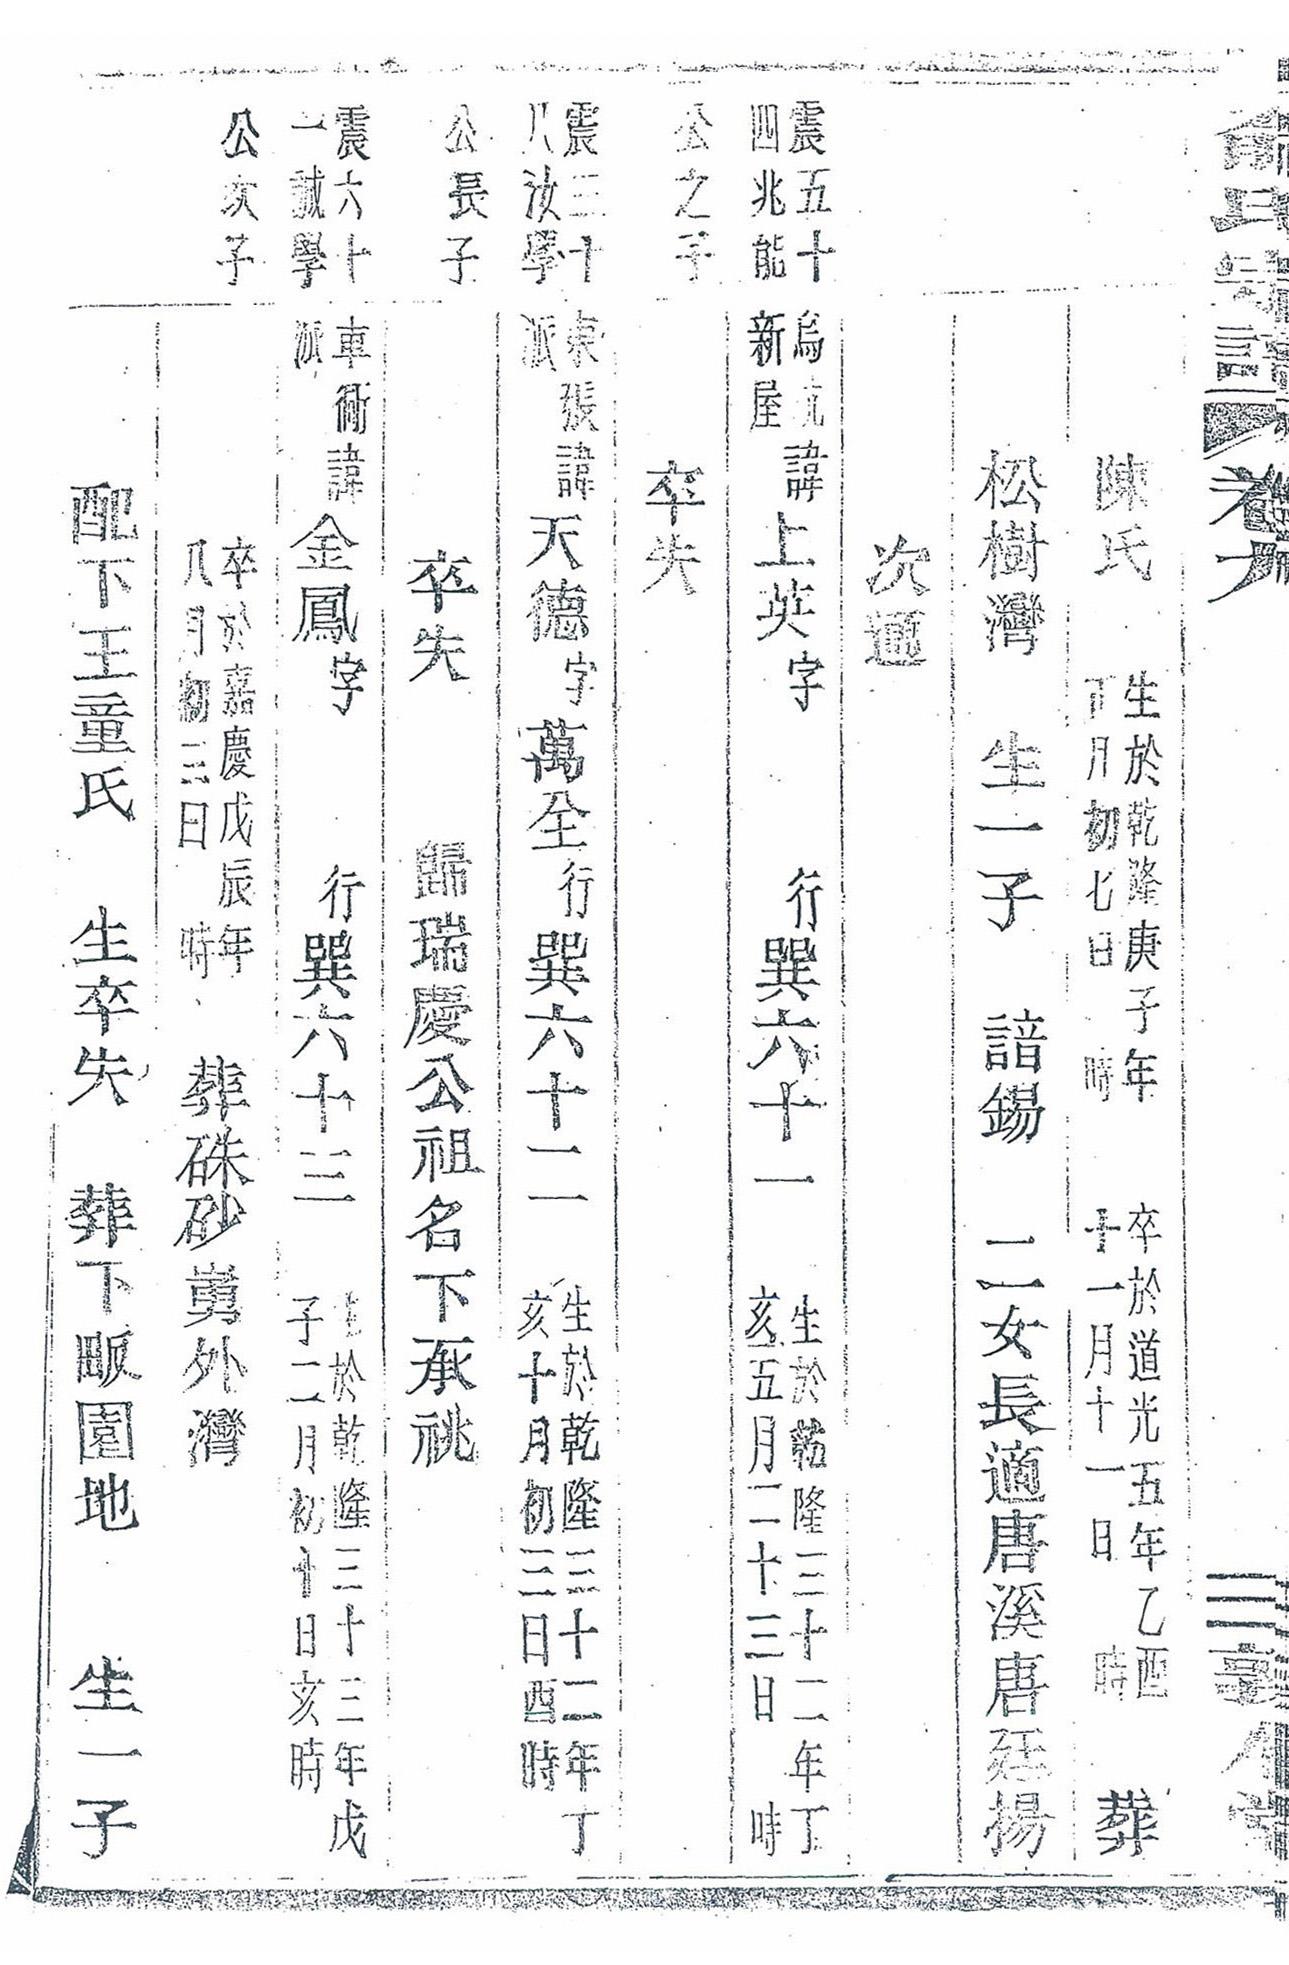 氏
譜
卷
陳氏 生於乾隆庚子年
月初七日 時 卒於道光五年乙酉
十一月十一日 時 葬
松樹灣 生一子 諳錫 二女長適唐溪唐廷揚
次適
震五十
四兆能
公之子
烏
新屋 諱上英字 行巽六十一 生於乾隆三十二年丁
亥五月二十三日 時
卒失
震三十
八汝學
公長子
東張
派 諱天德字萬全行巽六十二 生於乾隆三十二年丁
亥十月初三日酉時
卒失 歸瑞慶公祖名下承祧
震六十
一誠學
公次子
車衕
派 諱金鳳字 行巽六十三 生於乾隆三十三年戊
子二月初十日亥時
卒於嘉慶戊辰年
八月初三日 時 葬硃砂 外灣
配下王童氏 生卒失 葬下畈園地 生一子